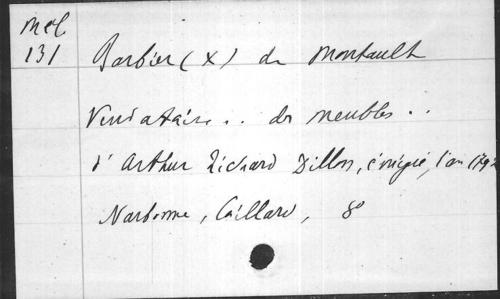 Mél
131
Barbier (X) de Montault
Inventaire .. des meubles ..
d'Arthur Richard Dillon, émigré, l'an 1792
Narbonne, Caillard, 8°